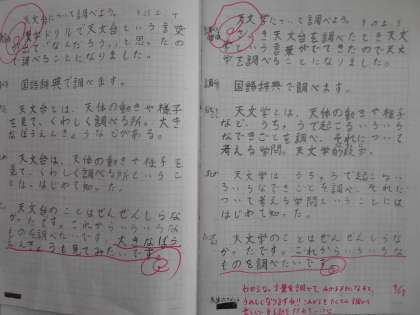 天文台について調べよう。
漢字ドリルで天文台という言葉
が出てなんだろう。と思ったの
で調べることになりました。
国語辞典で調べます。
天文台とは、天体の動きや様子
を見て、くわしく調べる所。大き
なぼうえんきょうなどがある。
天文台は、天体の動きや様子を
見て、くわしく調べる所というこ
とは、はじめて知った。
天文台のことはぜんぜんしらな
かったです。これからいろいろな
ものを調べたいです。大きなぼう
えんきょうも見てみたいです。
天文学について調べよう。
天文台を調べたとき天文
学という言葉がでてきたので天文
学を調べることになりました。
国語辞典で調べます。
天文学とは、天体の動きや様子
など、うちゅうで起こるいろいろ
なできごとを調べ、それについて
考える学問。天文学的数字。
天文学は、うちゅうで起こるい
ろいろなできごとを調べ、それに
ついて考える学問ということには
はじめて知った。
天文学のことはぜんぜんしらな
かったです。これからいろいろな
ものを調べたいです。